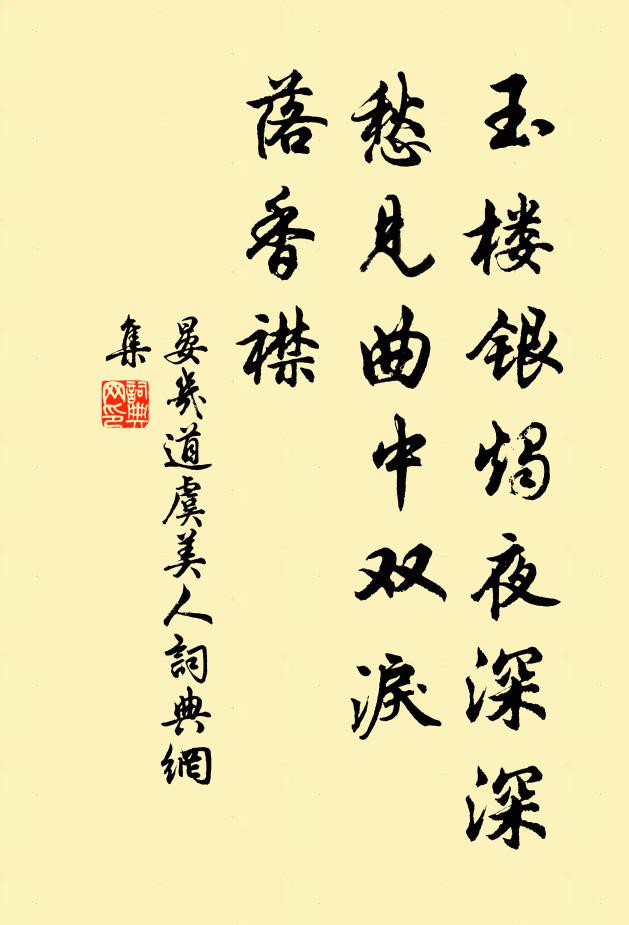 玉楼银烛夜深深
愁见曲中双淚
落香襟
晏幾道虞美人詞典網
集
詞典
网印